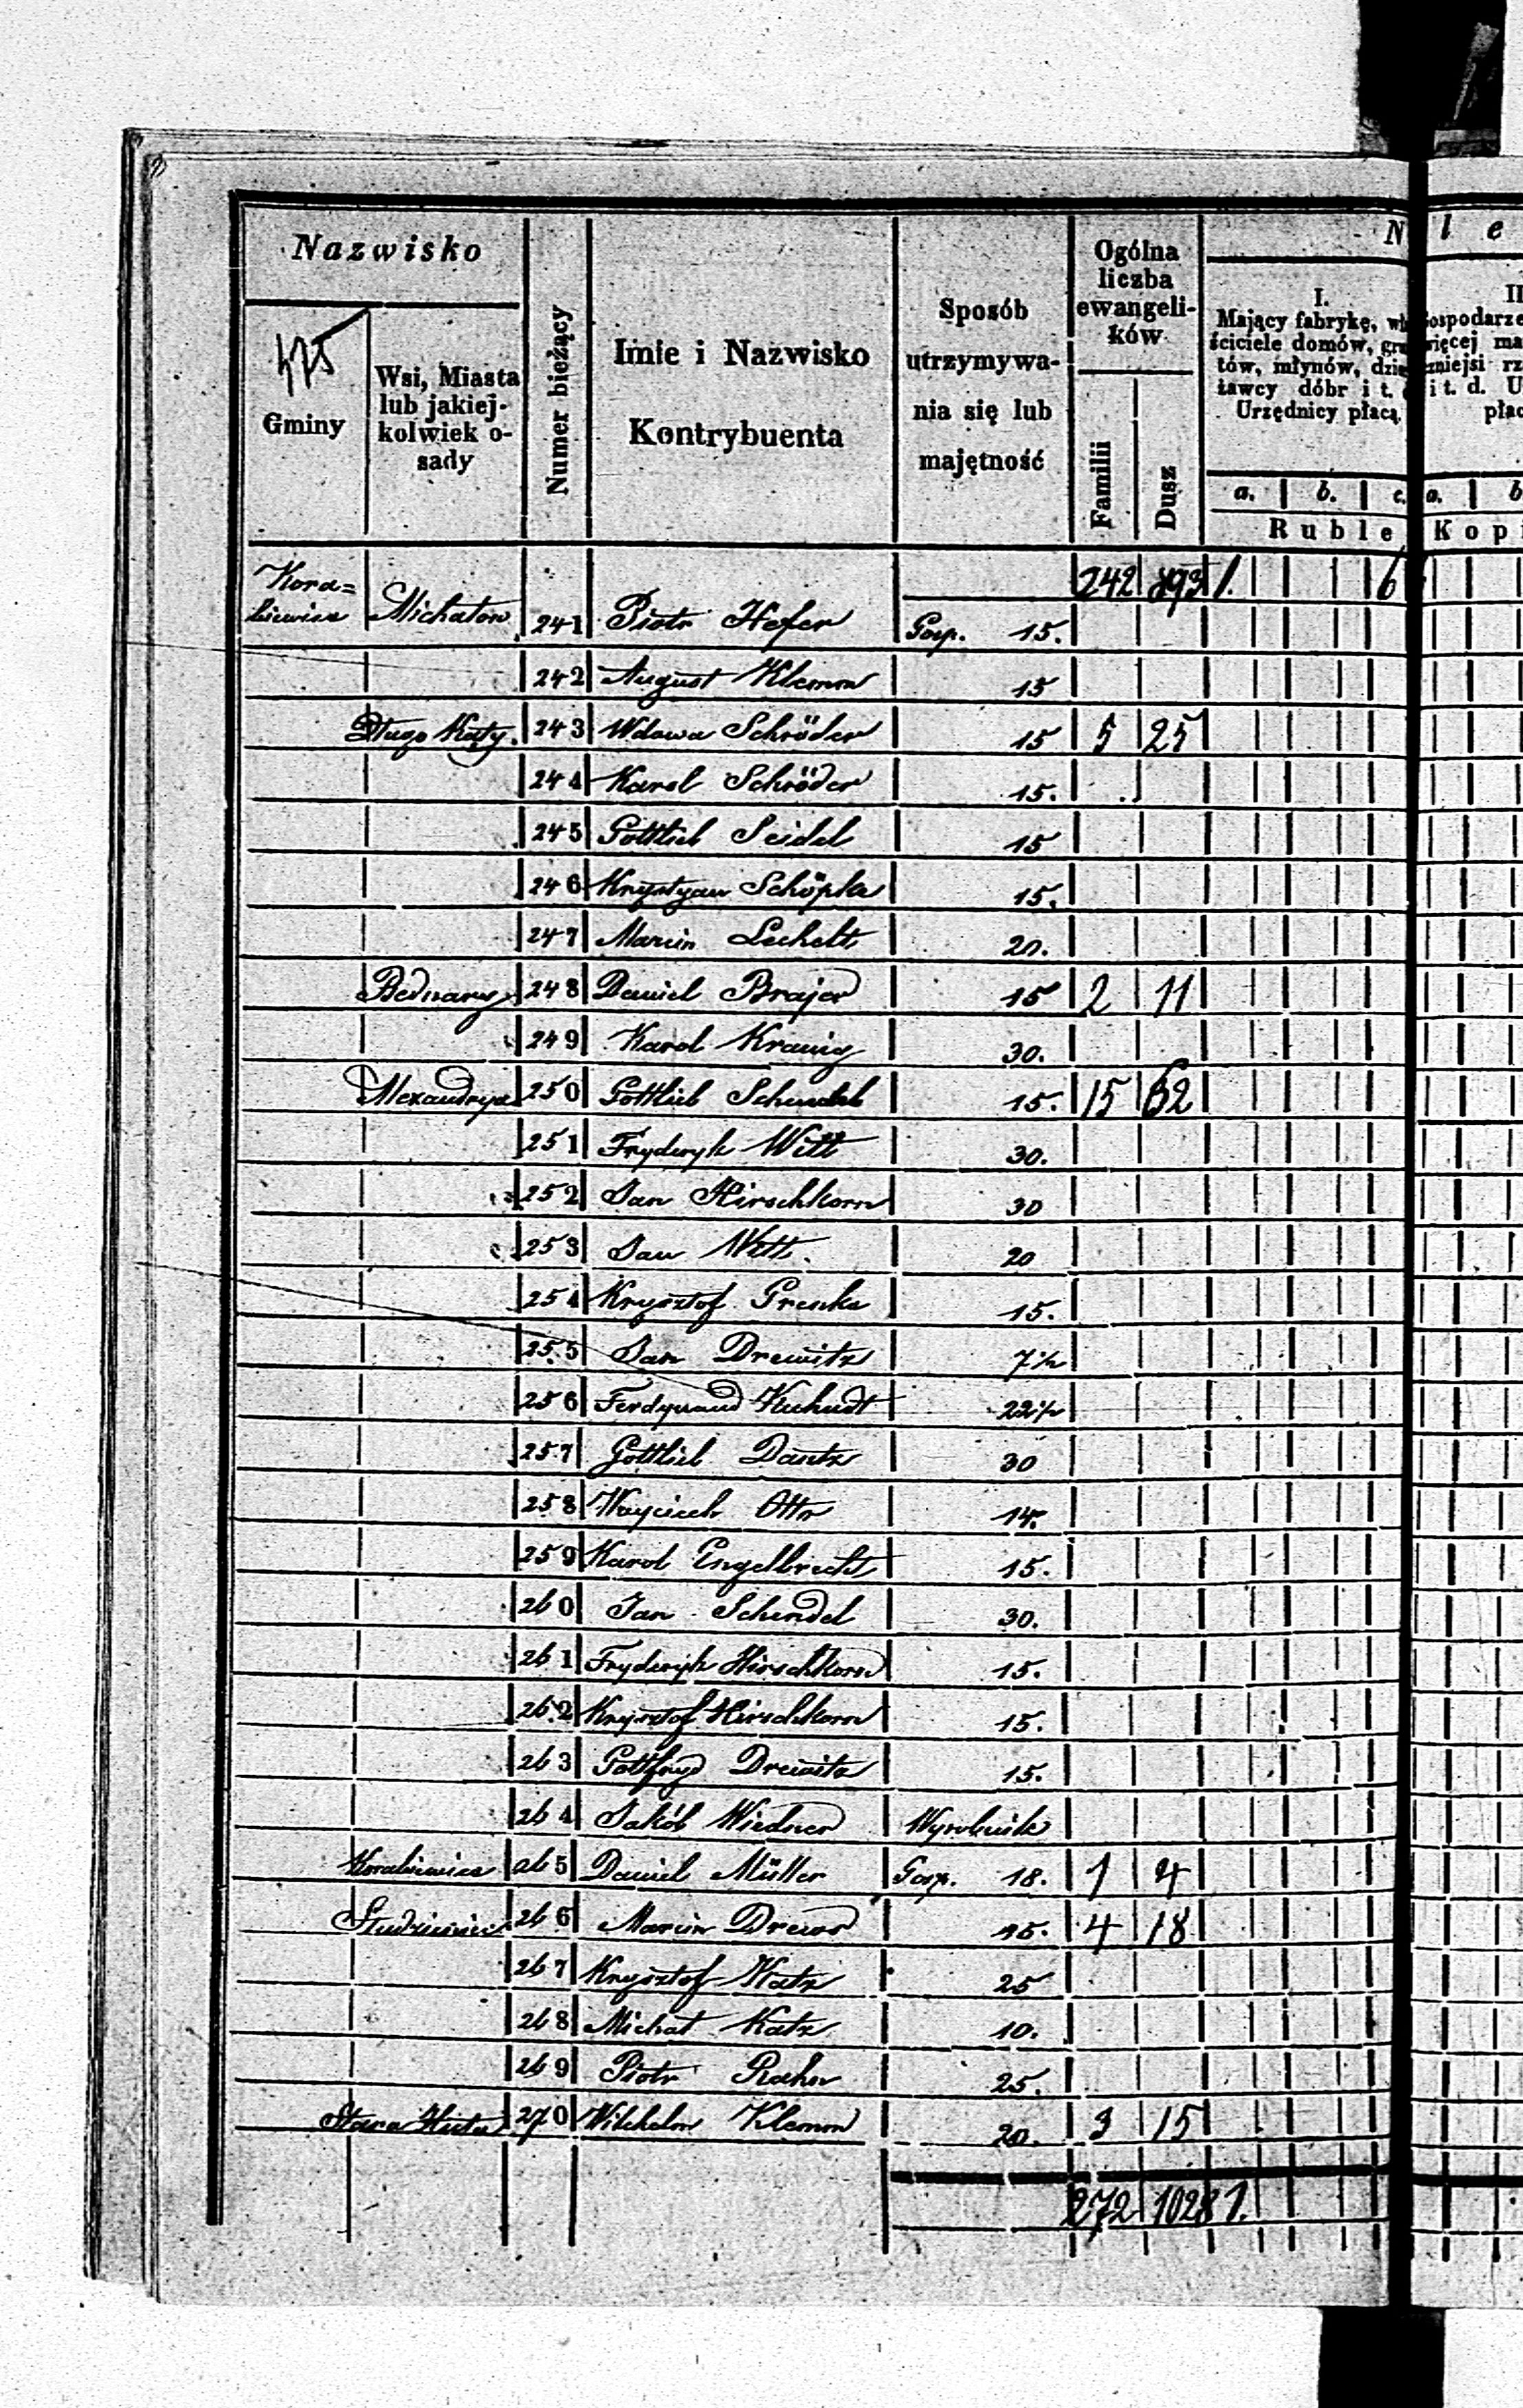 Nazwisko
475
Gminy
Wsi, Miasta
lub jakiej-
kolwiek o-
sady
Numer bieżący
Imie i Nazwisko
Kontrybuenta
Sposób
utrzymywa-
nia się lub
majętność
Ogólna
liczba
ewangeli-
ków
Familii
Dusz
N l e
I.
Mający fabrykę, wł
ściciele domów, gru
tów, młynów, dzie
ławcy dóbr i t.
Urzędnicy płacą
a. b. c.
Ruble
II
ospodarze
więcej ma
mniejsi rz
i t. d. U
płac
a. b
Kopi
242 893 1. 6
Kora=
biewice Michałow 241 Piotr Hefer Gosp. 15.
242 August Klemm 15
Długo Kąty. 243 Wdowa Schröder 15 5 25
244 Karol Schröder 15.
245 Gottlieb Seidel 15
246 Krystyan Schöpka 15.
247 Marcin Lechelt 20.
Bednary 248 Daniel Brajer 15 2 11
249 Karol Kranig 30.
Alexandrya 250 Gottlieb Schendel 15. 15 62
251 Fryderyk Witt 30.
252 Jan Hirschkorn 30
253 Jan Witt. 20
254 Krysztof Grenke 15.
255 Jan Drewitz 7½
256 Ferdynand 22½
257 Gottlieb Dantz 30
258 Woyciech Otto 14.
259 Karol Engelbrecht 15.
260 Jan Schendel 30.
261 Fryderyk Hirschkorn 15.
262 Krysztof Hirschkorn 15.
263 Gottfryd Drewitz 15.
264 Jakób Wiedner Wyrobnik
Korabiewice 265 Daniel Müller Gosp. 18. 1 4
Studzieniec 266 Marcin Drews 15. 4 18
267 Krysztof Katz 25
268 Michał Katz 10.
269 Piotr Rahn 25.
Stara Huta 270 Wilchelm Klemm 20. 3 15
272 1028 1.